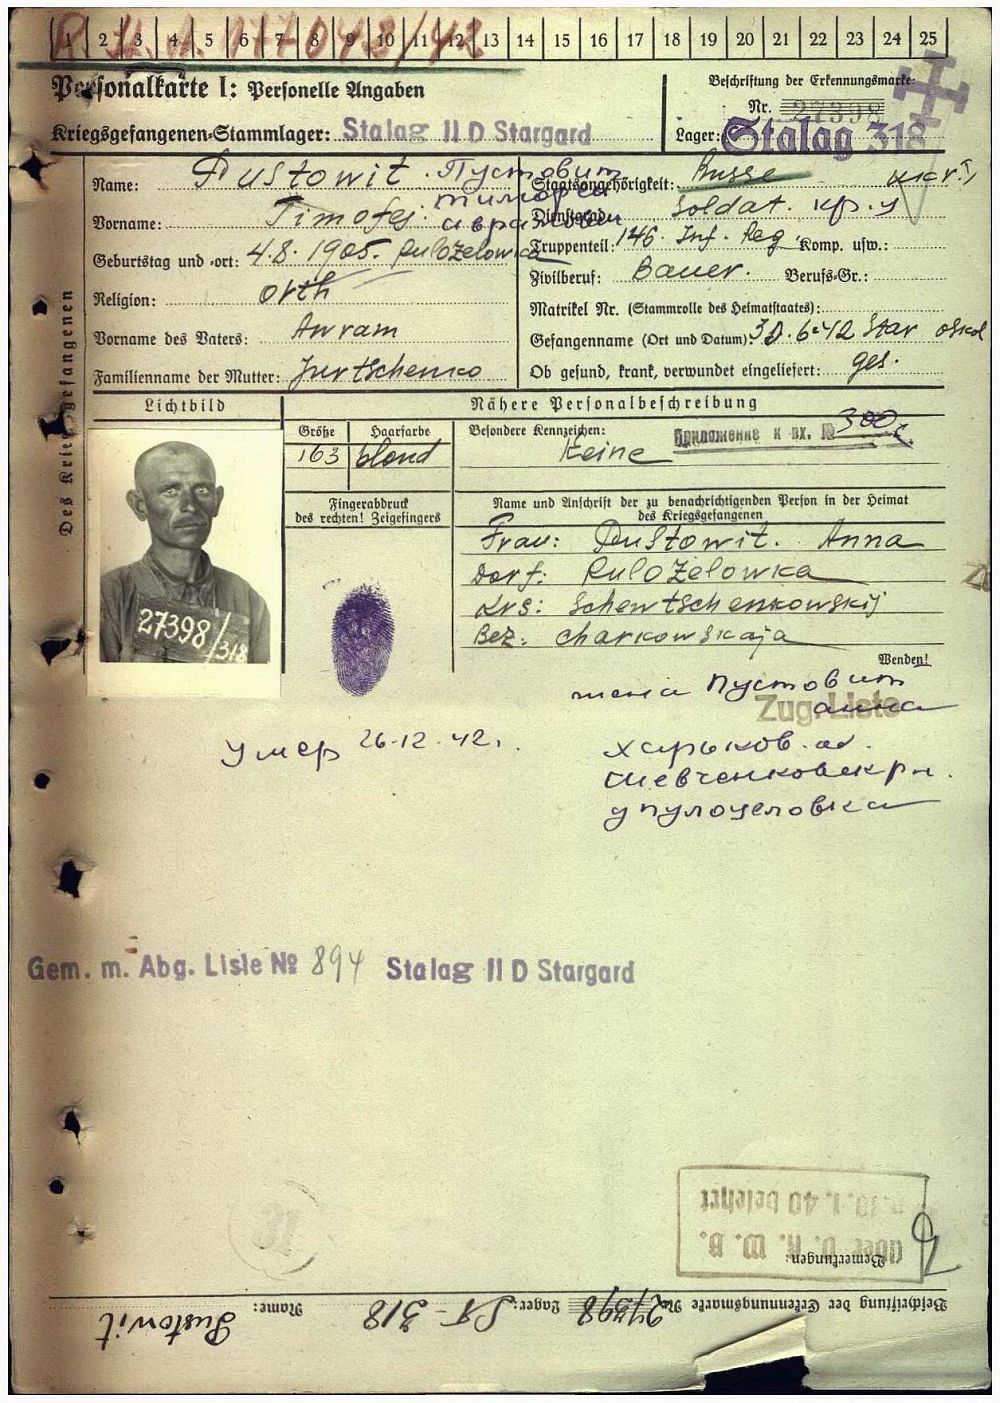 1 2 3 4 5 6 7 8 9 10 11 12 13 14 15 16 17 18 19 20 21 22 23 24 25
Personalkarte I: Personelle Angaben
Beschriftung der Erkennungsmarke:
Nr. 27398
Kriegsgefangenen-Stammlager: Stalag II D Stargard
Lager: Stalag 318
Des Kriegsgefangenen
Name: Pustowit Пустовит
Vorname: Timofej Тимофей
Geburtstag und -ort: 4.8.1905.
Religion: orth
Vorname des Vaters: Awram
Familienname der Mutter: Jurtschenko
Staatsangehörigkeit: Russe
Dienstgrad: Soldat. кр-ц
Truppenteil: 146. Inf. Reg Komp. usw.:
Zivilberuf: Bauer. Berufs-Gr.:
Matrikel Nr. (Stammrolle des Heimatstaates):
Gefangenname (Ort und Datum): 30.6.42 Star oskol
Ob gesund, krank, verwundet eingeliefert: ges.
Lichtbild
Nähere Personalbeschreibung
Größe Haarfarbe
163 blond
Besondere Kennzeichen: Keine
Приложение к вх. №
Fingerabdruck
des rechten! Zeigefingers
Name und Anschrift der zu benachrichtigenden Person in der Heimat
des Kriegsgefangenen
Frau: Pustowit. Anna
Dorf: Pulozelowka
Krs: Schewtschenkowskij
Bez: Charkowskaja
Wenden!
27398/318
жена Пустовит
анна
Zug. Liste
умер 26-12-42.
харьков. об.
шевченковск рн.
д пулоцеловка
Gem. m. Abg. Lisle № 894 Stalag II D Stargard
Bemerkungen:
über V. K. W. B.
10.1.40 belehrt
Beschriftung der Erkennungsmarke Nr. 27398 Lager: St-318 Name: Pustowit